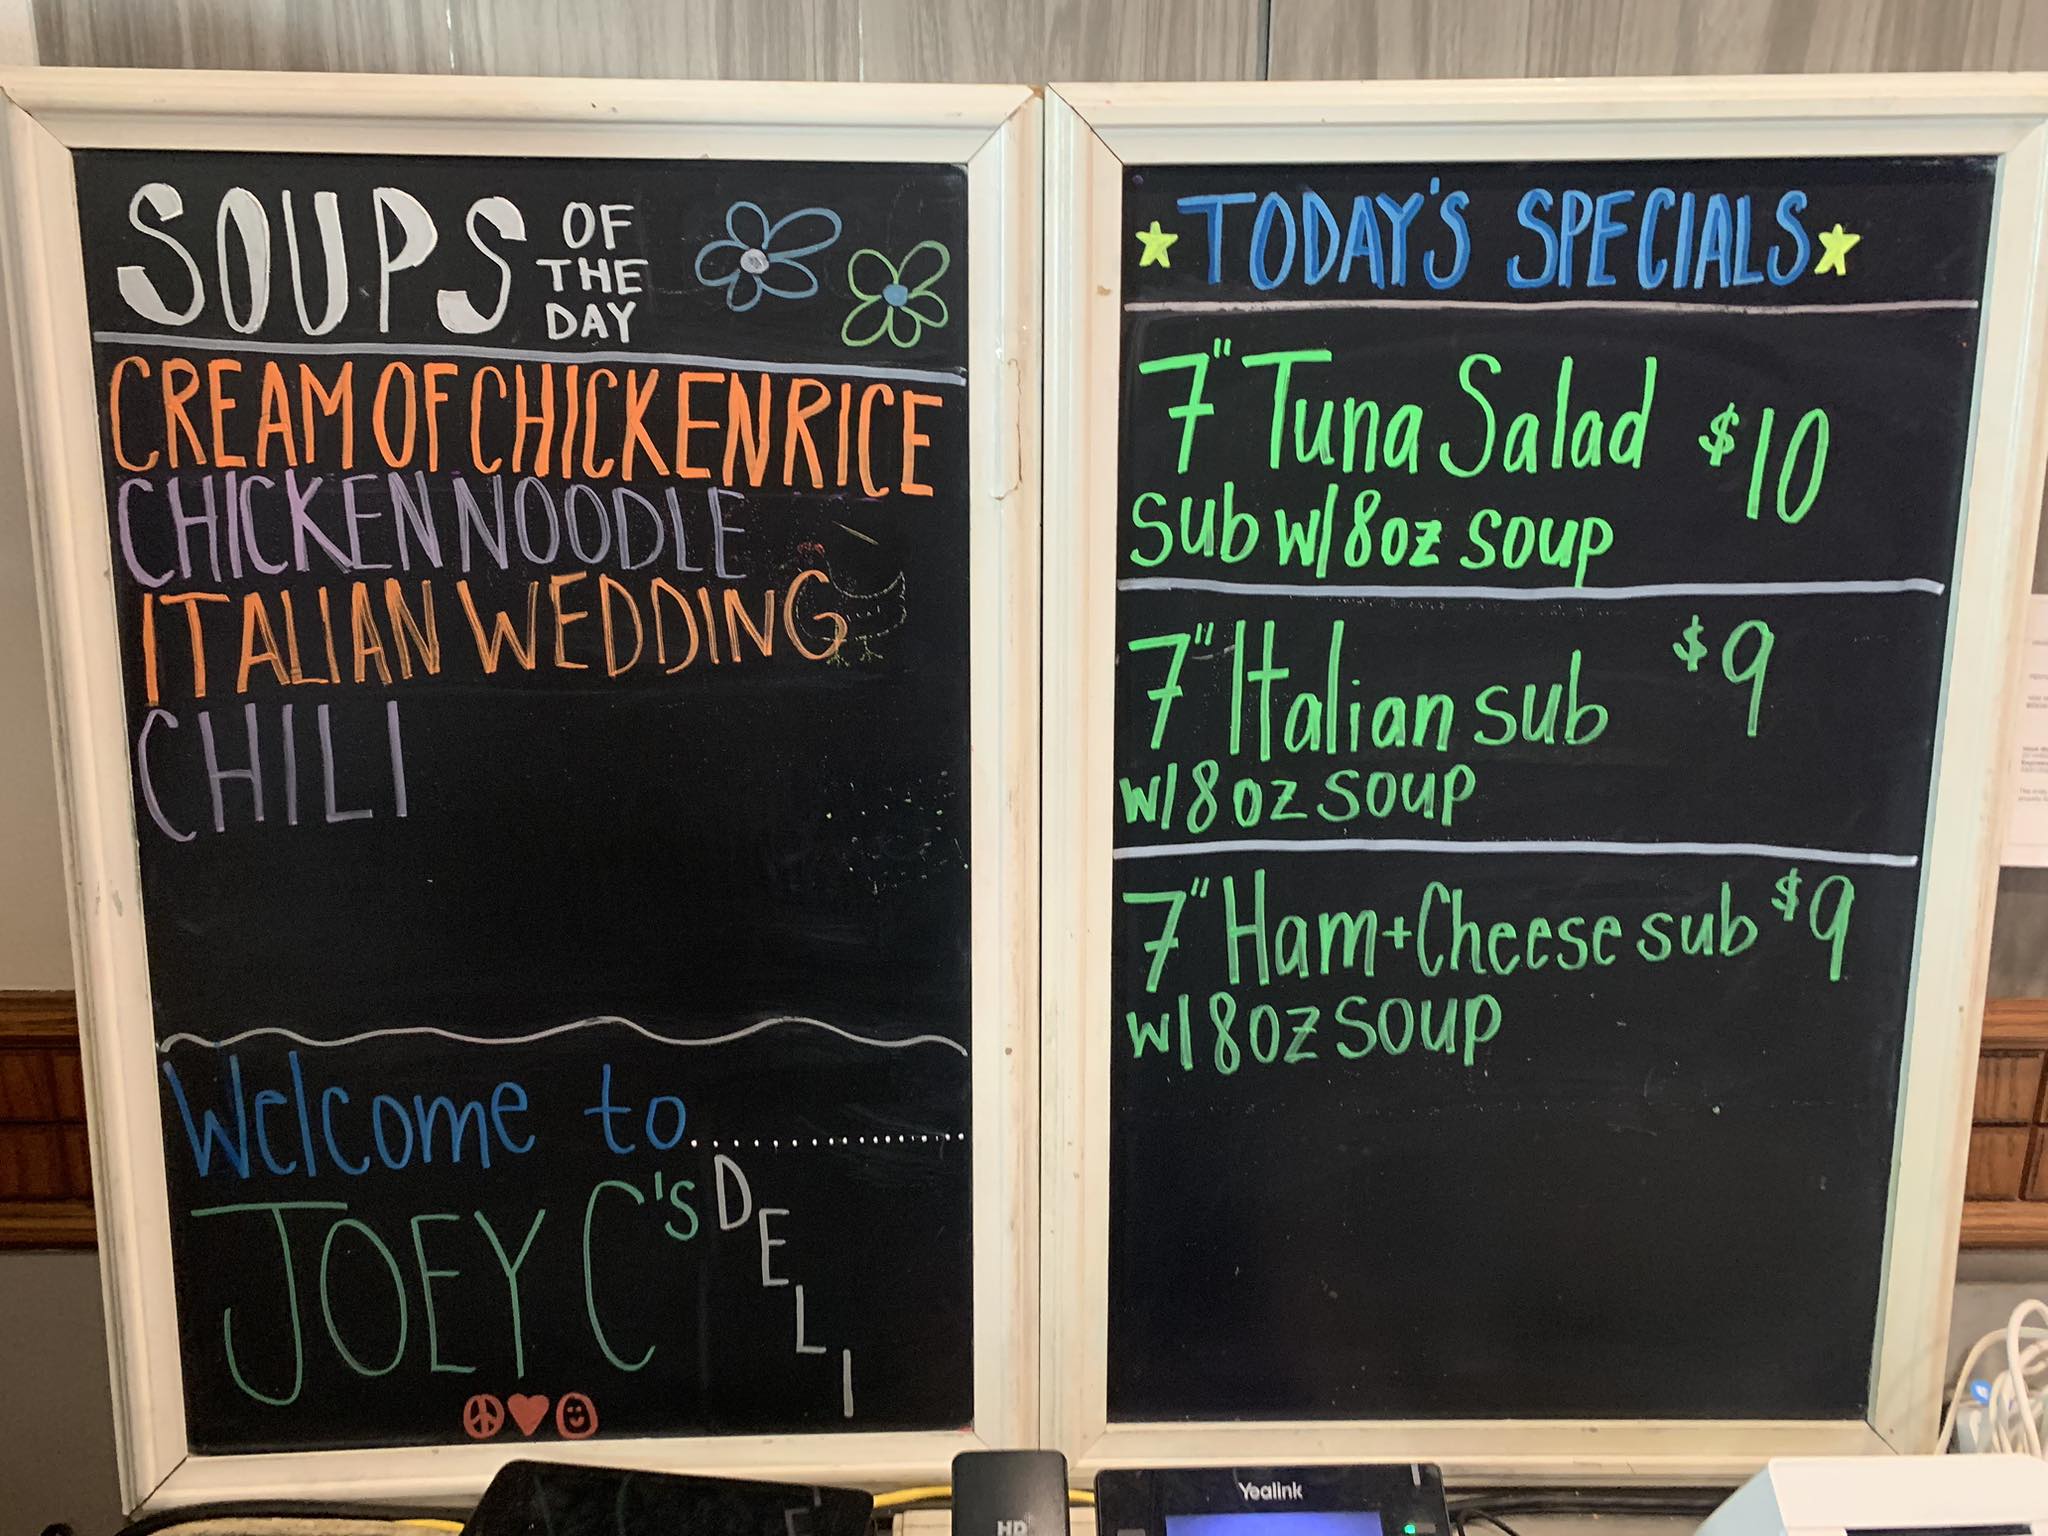 SOUPS OF THE DAY
CREAM OF CHICKEN RICE
CHICKEN NOODLE
ITALIAN WEDDING
CHILI
Welcome to..............
JOEY C's DELI
TODAY'S SPECIALS
7" Tuna Salad $10
sub w/8oz soup
7" Italian sub $9
w/8oz soup
7" Ham+Cheese sub $9
w/8oz soup
Yealink
HD